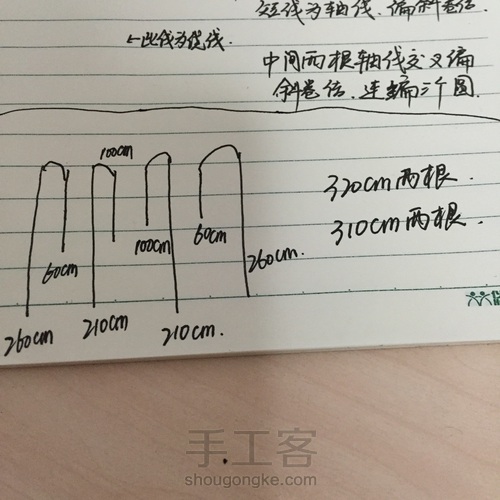 短线为轴线,偏斜卷结.
←此线为绕线.
中间两根轴线交叉偏
斜卷结.连编三个圆.
100cm
320cm两根.
310cm两根.
60cm
100cm
60cm
260cm.
260cm
210cm
210cm.
手工客
shougongke.com